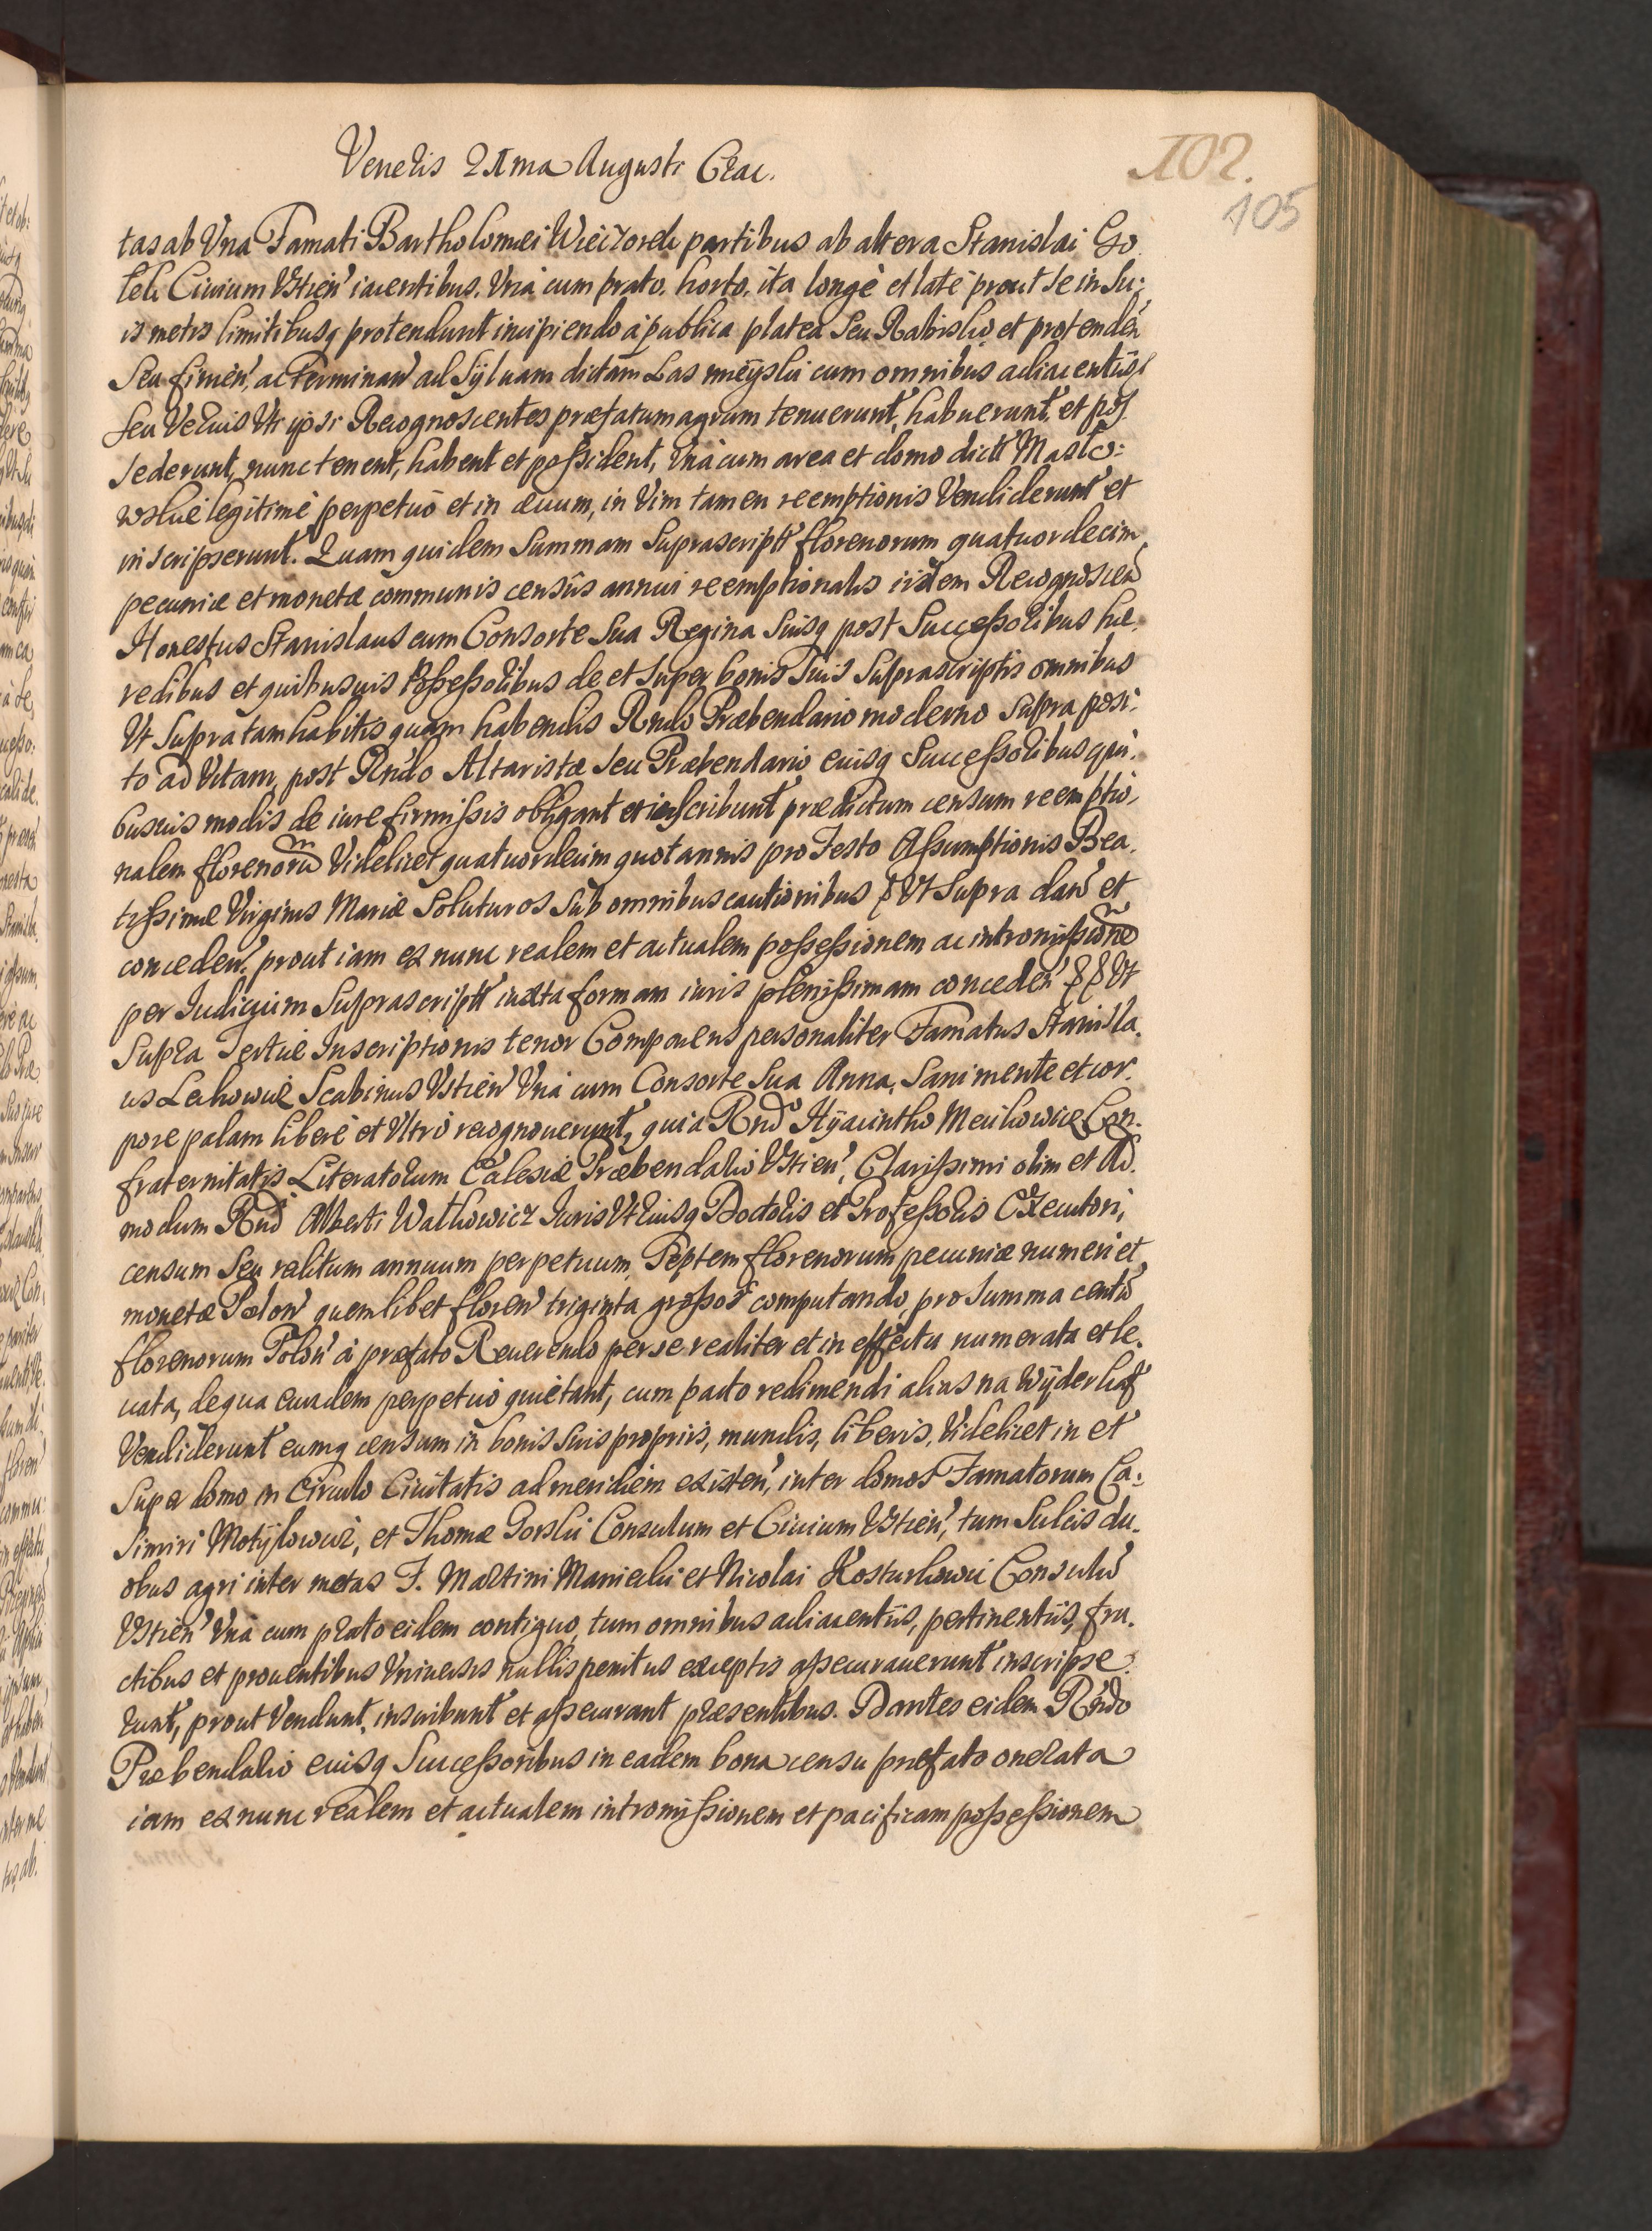 Veneris 21ma Augusti Crac.
102.
105
tas ab Una Famati Bartholomæi Wieczorek partibus ab altera Stanislai Go
lek Ciuium Vstień iacentibus. Vnà cum prato, horto, ita longè et latè prout se in Su:
is metis limitibusq protendunt incipiendo à publica platea Seu Rabisko, et protendeń
Seu finień, ac terminań ad Syluam dictam Las mieyski cum omnibus adiacentÿs
seu Vti ipsi Recognoscentes præfatum agrum tenuerunt, habuerunt, et pos
sederunt, nunc tenent, habent et possident, Vnà cum area et domo dictt Maslo:
wskie legitimè perpetuò et in æuum, in Vim tamen reemptionis Vendiderunt et
inscripserunt. Quam quidem Summam Suprascriptt florenorum quatuordecim
pecuniæ et monetæ communis censûs annui reemptionalis iidem Recognosceń
Honestus Stanislaus cum Consorte Sua Regina Suisq post Successoribus hæ.
redibus et quibusuis Possessoribus de et Super bonis Suis Suprascriptis omnibus
Vt Supra tam habitis quam habendis Rndo Præbendario moderno Supra posi:
to ad Vitam, post Rndo Altaristæ seu Præbendario euisq Successoribus qui:
busuis modis de iure firmissis obligant et inscribunt prædictum censum reemptio,
nalem florenorũ Videlicet quatuordecim quotannis pro Festo Assumptionis Bea.
tissimæ Virginis Mariæ Soluturos Sub omnibus cautionibus &amp; Vt Supra dań et
concedeń, prout iam ex nunc realem et actualem possessionem ac intromissionẽ
per Iudicium Suprascriptt iuxta formam iuris plenissimam concedeń &amp;&amp; Vt
Supra Tertiæ Inscriptionis tenor Comparens personaliter Famatus Stanisla.
us Lechowicz Scabinus Vstień Vnà cum Consorte Sua Anna, Sani mente et cor.
pore palam liberè et Vltrò recognouerunt, quia Rndo Hyacintho Con.
fraternitatis Literatorum Præbendario Vstień, Clarissimi olim et Ad.
modum Rnd Alberti Watkowicz Iuris Vtriusq Doctoris et Professoris Exeutori,
censum Seu reditum annuum perpetuum Septem florenorum pecuniæ numeri et
monetæ Poloń quemlibet floreń triginta grossos computando, pro Summa centũ
florenorum Poloń à præfato Reuerendo per se realiter et in effectu numerata et le.
uata, de qua eundem perpetuò quietant, cum pacto redimendi alias na Wyderkaf
Vendiderunt eumq censum in bonis Suis proprijs, mundis, liberis, Videlicet in et
Super domo in Circulo Ciuitatis ad meridiem existeń, inter domos Famatorum Ca:
simiri Motylowicz, et Thomæ Gorski Consulum et Ciuium Vstień, tum Sulcis du.
obus agri inter metas F. Martini Maniecki et Nicolai Consulũ
Vstień Vnà cum prato eidem contiguo, tum omnibus adiacentÿs, pertinentÿs, fru.
ctibus et prouentibus Vniuersis nullis penitus exceptis assecurauerunt inscripse.
runt, prout Vendunt, inscribunt et assecurant præsentibus. Dantes eidem Rndo
Præbendario euisq Successoribus in eadem bona censu præfato onerata
iam ex nunc realem et actualem intromissionem et pacificam possessionem